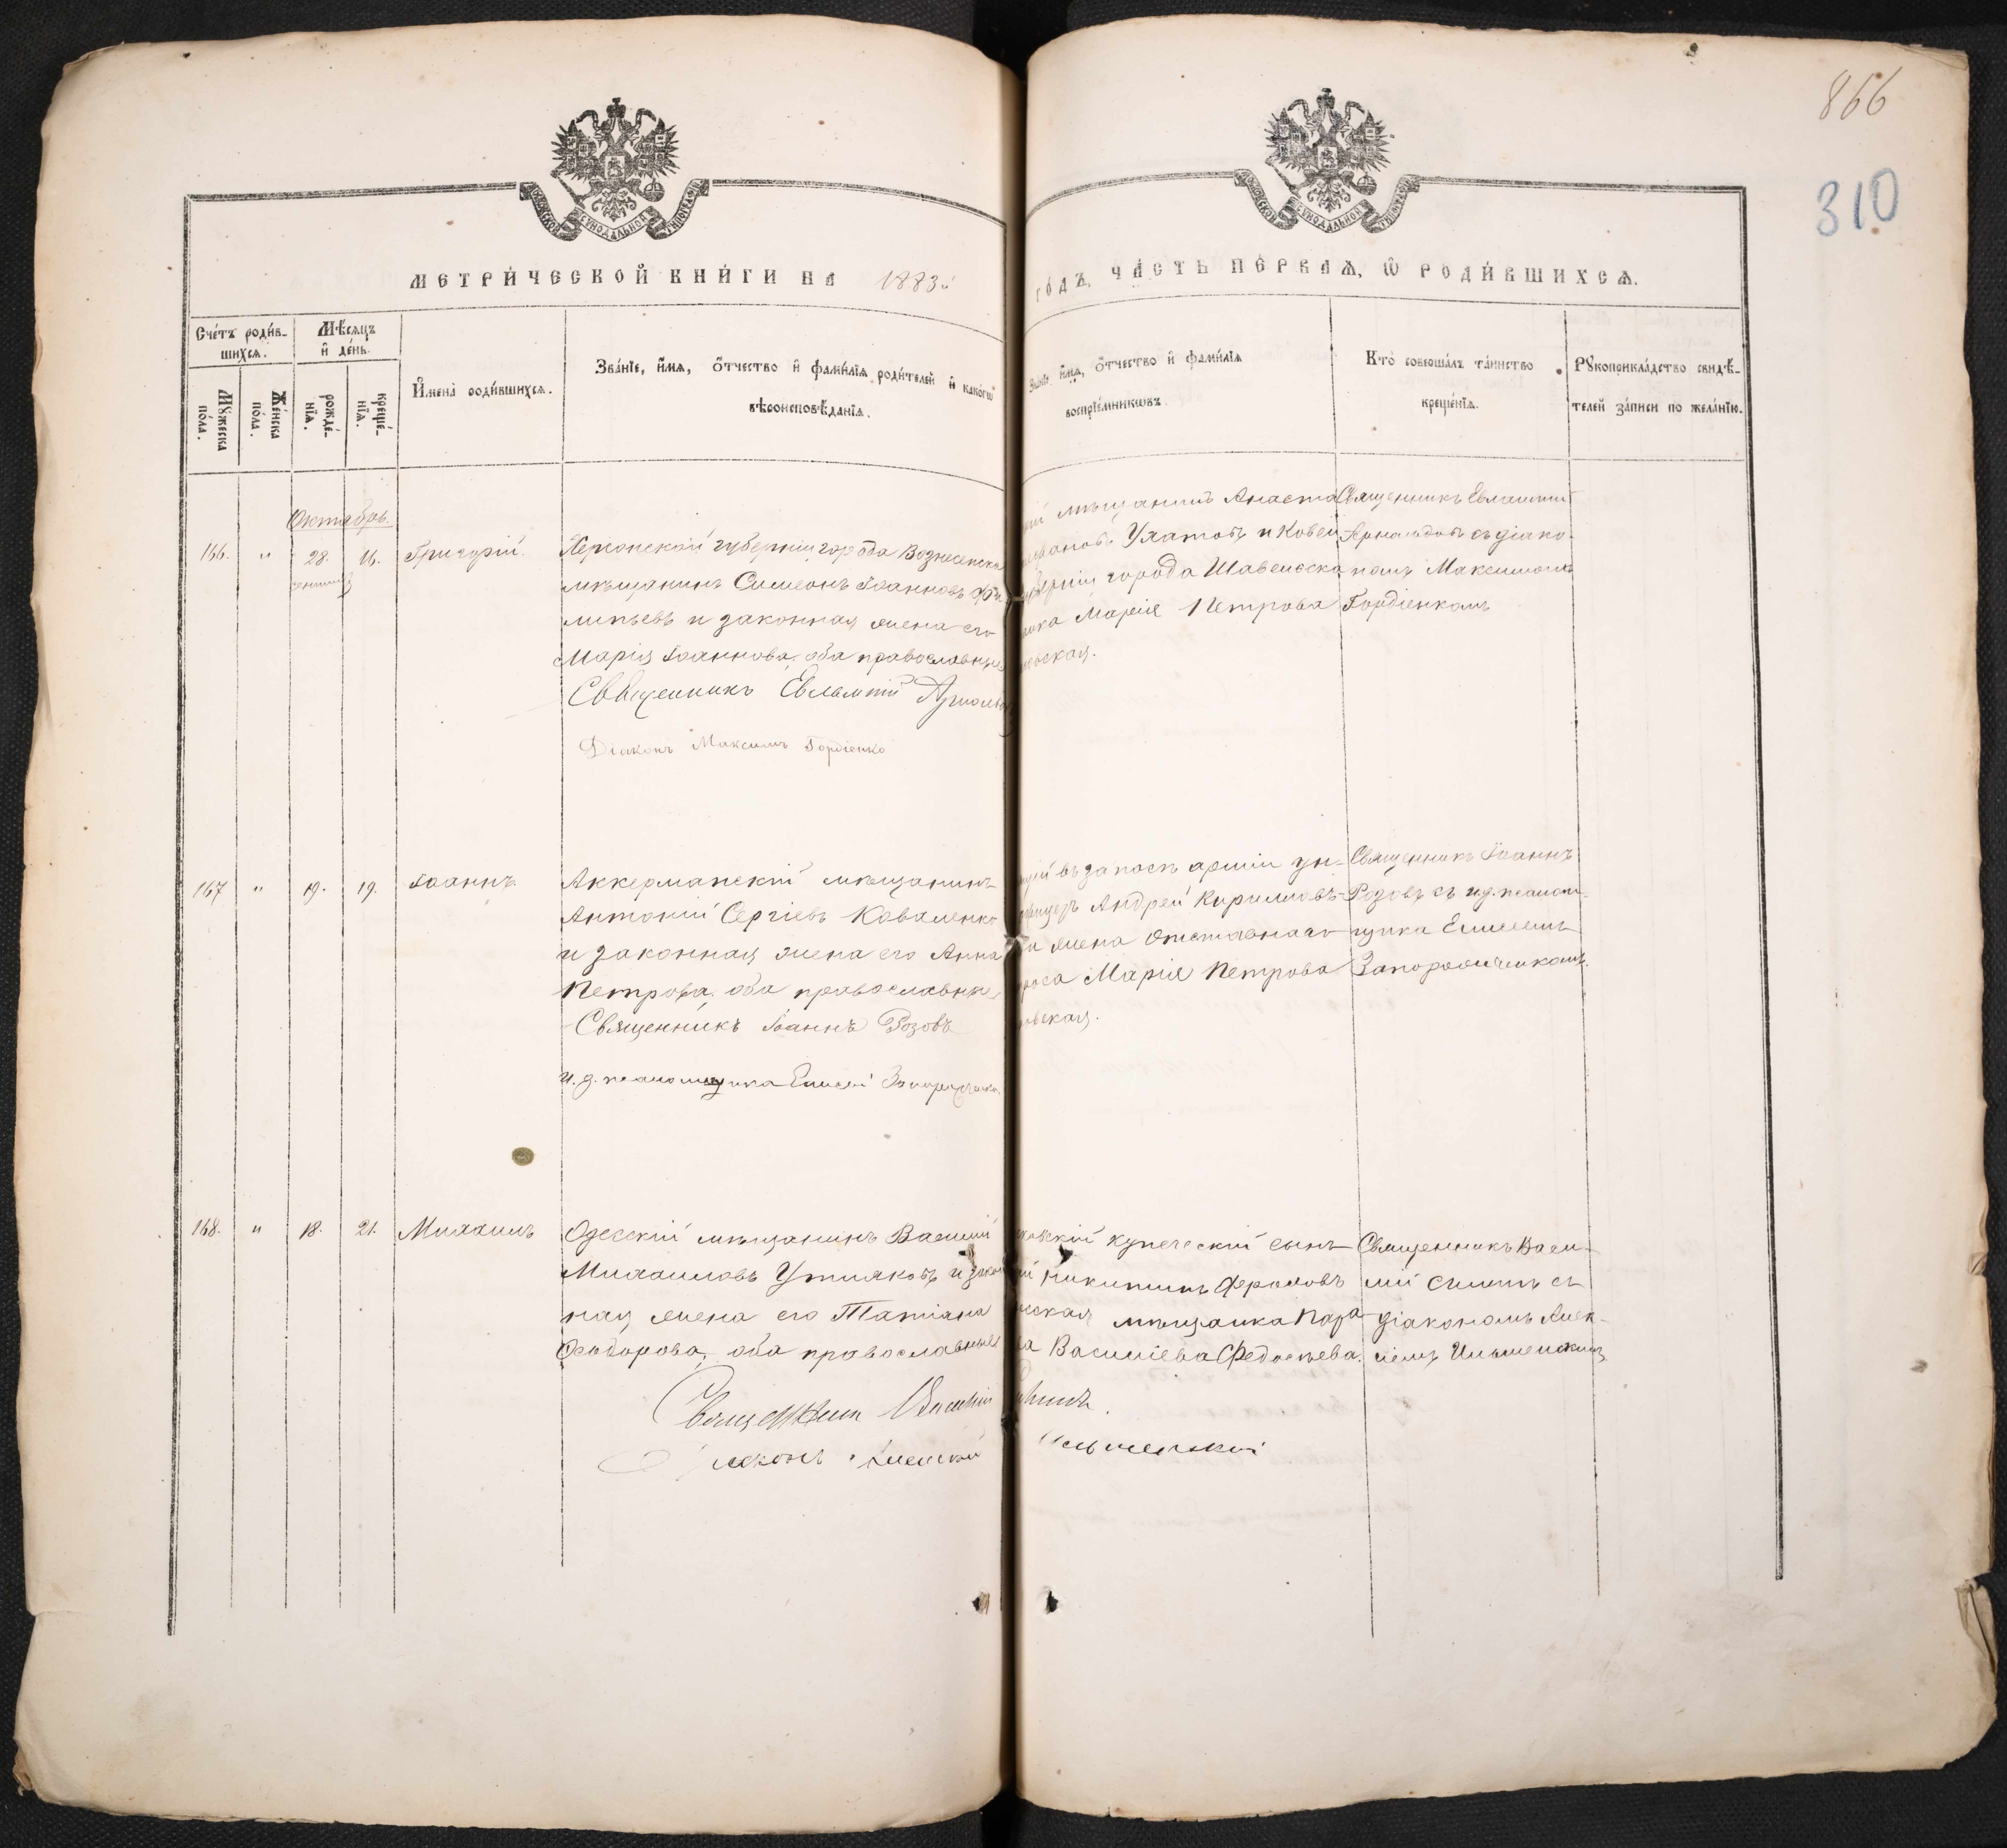 866
310
МОСКОВСКОЙ СѴНОДАЛЬНОЙ ТИПОГРАФІИ
СѴНОДАЛЬНОЙ
МЕТРИ́ЧЕСКОЙ КНИ́ГИ НА 1883й
ГО́ДЪ, ЧА́СТЬ ПЕ́РВАѦ, Ѡ҆ РОДИ́ВШИХСѦ.
Сче́тъ роди́в-
шихсѧ.
Мѣ́сѧцъ
и҆ де́нь.
Мꙋ́жеска
по́ла.
Же́нска
по́ла.
рожде́-
нїѧ.
креще́-
нїѧ.
И҆мена̀ роди́вшихсѧ.
Зва́нїе, и҆́мѧ, ѻ҆́тчество и҆ фамі́лїѧ роди́телей и҆ како́гѡ
вѣроисповѣ́данїѧ.
Зва́нїе, и҆́мѧ, ѻ҆́тчество и҆ фамі́лїѧ
воспрїе́мникѡвъ.
Кто̀ соверша́лъ та́инство
креще́нїѧ.
Рꙋкоприкла́дство свидѣ́-
телей за́писи по жела́нїю.
Октябрь.
166. " 28. 16. Григорій.
Херсонской губерніи города Вознесенска
мѣщанинъ Симеонъ Іоанновъ Фи-
липьевъ и законная жена его
Марія Іоаннова, оба православные
Священникъ Евлампій
Діаконъ Максимъ Гордіенко
мѣщанинъ Анаста
Улатовъ и Ковен
города Шавельска
Марія Петрова
Священникъ Евлампій
Арнольдовъ съ діако-
номъ Максимомъ
Гордіенкомъ
167 " 19. 19. Іоаннъ
Аккерманскій мѣщанинъ
Антоній Сергіевъ Коваленко
и законная жена его Анна
Петрова, оба православные
Священникъ Іоаннъ Розовъ
и. д. псаломщика Елисей
въ запасъ арміи ун-
Андрей Кириловъ
жена отставнаго
Марія Петрова
Священникъ Іоаннъ
Розовъ съ и.д. псалом-
щика Елисеемъ
Запорожченкомъ.
168. " 18. 21. Михаилъ
Одесскій мѣщанинъ Василій
Михаиловъ Утляковъ и закон
ная жена его Татіана
Ѳеодорова, оба православные
Священникъ Василій
Діаконъ Алексій
купеческій сынъ
Никитинъ
мѣщанка Пара
Василіева Федосѣева.
Священникъ Васи-
лій съ
діакономъ Алек-
сіемъ